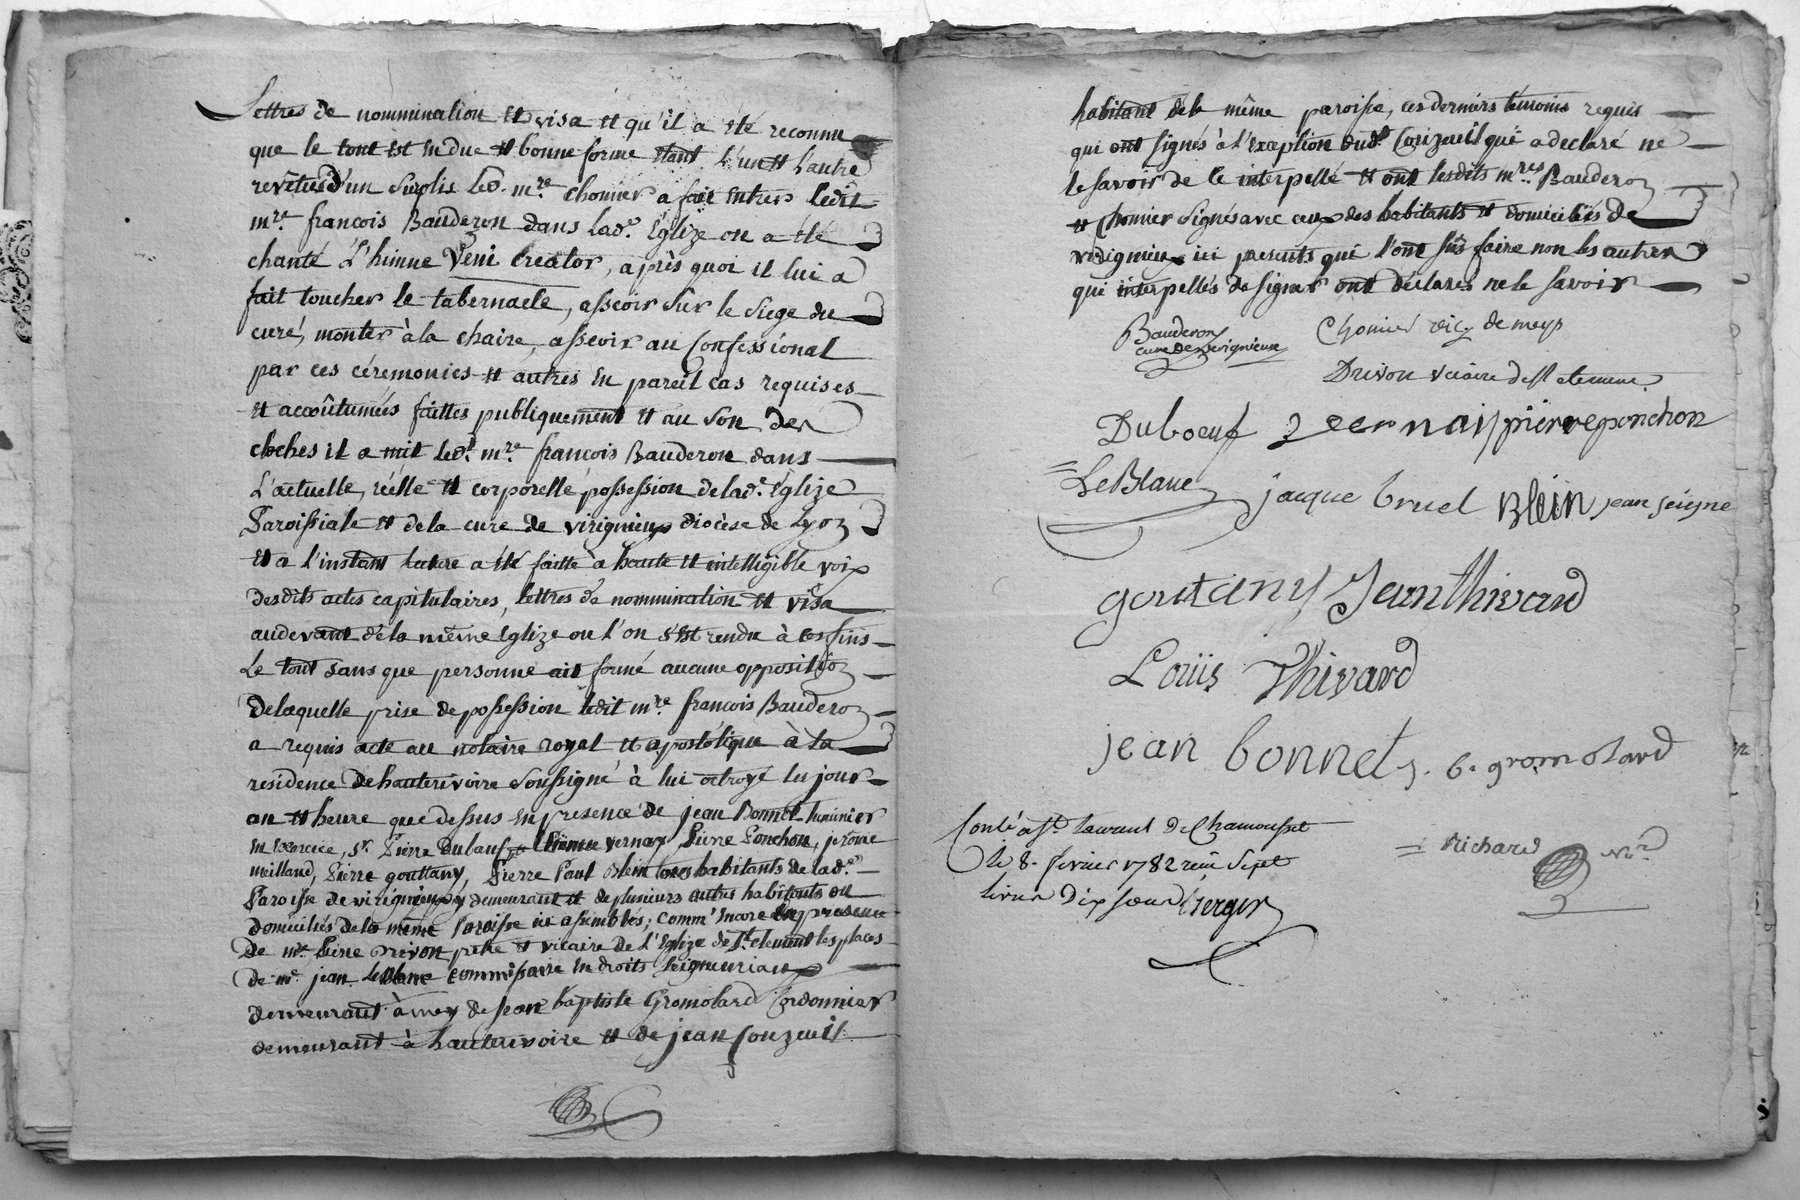 Lettres de nommination et visa et qu'il a été reconnu
que le tout est en due et bonne forme etant l'un et l'autre
revêtus d'un surplis led. mre. Chomier a fait entrer ledit
mre. françois Bauderon dans lade. Eglize on a été
chanté l'himne Veni Creator, après quoi il lui a
fait toucher le tabernacle, asseoir sur le siege du
curé, monter à la chaire, asseoir au Confessional
par ces céremonies et autres en pareil cas requises
et accoûtumées faittes publiquement et au son des
cloches il a mit ledt. mre. françois Bauderon dans
L'actuelle, réelle et corporelle possession de lade. Eglize
Paroissiale et de la cure de virigneux diocèse de Lyon
et a l'instant lecture a été faitte à haute et intelligible voix
desdits actes capitulaires, lettres de nommination et visa
audevant dela même Eglize ou l'on s'est rendu à ces fins
Le tout sans que personne ait formé aucune opposition
delaquelle prise de possession ledit mre françois Bauderon
a requis acte au notaire royal et apostolique à la
residence de hauterivoire soussigné à lui octroyé les jour
an et heure que dessus en presence de jean Bonnet luminier
en Exercice, sr. Pierre Dubœuf, Etienne vernay Pierre Ponchon, jerôme
meilland, Pierre gouttany, Pierre Paul Blein tous habitants de lade.
Paroisse de virigneux y demeurant et de plusieurs autres habitants ou
domiciliés de la même Paroisse ici assemblés; comm' Encore En presence
de mre Pierre Drivon prêtre et vicaire de l'Eglize de St. clement les places
de me. jean Leblanc commissaire en droits seigneuriaux
demeurant à mey de jean baptiste Gromolard Cordonnier
demeurant à hauterivoire et de jean Couzeuil
habitant dela même paroisse, ces derniers témoins requis
qui ont signés à l'exception dudt. Couzeuil qui a declaré ne
le savoir de ce interpellé et ont lesdits mres Bauderon
et Chomier signés avec ceux des habitants et domiciliés de
virigneux ici presents qui l'ont sûs faire non les autres
qui interpellés de signer ont déclarés ne le savoir
Bauderon
curé de virigneux
Chomier vic. de meys
Drivon vicaire de st clement
Duboeuf vernay pierre ponchon
LeBlanc jacque bruel Blein jean seigne
goutany Jean thivard
Louis Thivard
jean bonnet j. b. gromolard
Conlé a St. Laurent De Chamousset
Le 8. fevrier 1782 reçu sept
livres dix sous Verger
Richard Nre